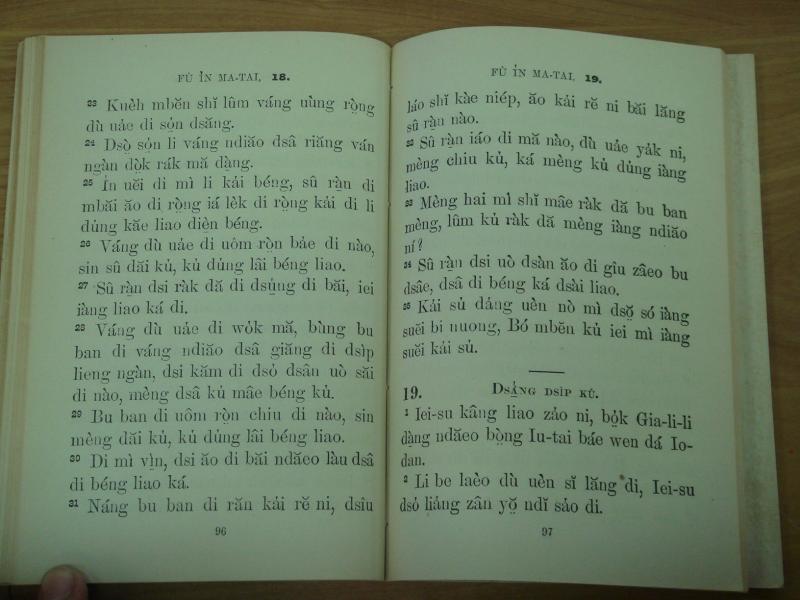 FÙ ǏN MA-TAI, 18.
23 Knèh mbĕn shĭ lûm váng uùng rọ̀ng
dù uảe di sọ́n dsăng.
24 Dsọ̀ sọ́n li váng ndiăo dsâ riăng ván
ngàn dọ̀k rák mă dạ̀ng.
25 Ín uĕi di mì li kải béng, sû rạ̀n di
mbăi ăo di rọ̀ng iá lèk di rọ̀ng kải di li
dủng kăe liao diện béng.
26 Váng dù uảe di uôm rọ̀n bảe di nào,
sin sû dăi kủ, kủ dủng lâi béng liao.
27 Sû rạ̀n dsi ràk dă di dsụ̉ng di băi, iei
iàng liao ká di.
28 Váng dù uảe di wọ́k mă, bùng bu
ban di váng ndiăo dsâ giăng di dsịp
lieng ngàn, dsi kăm di dsọ́ dsân uò săi
di nào, mèng dsâ kủ mâe béng kủ.
29 Bu ban di uôm rọ̀n chiu di nào, sin
mèng dăi kủ, kủ dủng lâi béng liao.
30 Di mì vìn, dsi ăo di băi ndăeo làu dsâ
di béng liao ká.
31 Náng bu ban di răn kải rĕ ni, dsîu
96
FÙ ǏN MA-TAI, 19.
láo shĭ kàe niép, ăo kải rĕ ni băi lăng
sû rạ̀n nào.
32 Sû rạ̀n iáo di mă nào, dù uảe yảk ni,
mèng chiu kủ, ká mèng kủ dủng iàng
liao.
33 Mèng hai mì shĭ mâe ràk dă bu ban
mèng, lûm kủ ràk dă mèng iàng ndiăo
ní?
34 Sû rạ̀n dsi uò dsàn ăo di gîu zâeo bu
dsâe, dsâ di béng ká dsài liao.
35 Kải sủ dảng uèn nò mì dsọ̆ só iàng
suĕi bi nuong, Bó mbĕn kủ iei mì iàng
suĕi kải sủ.
19. DSẢNG DSÌP KÛ.
1 Iei-su kâng liao zảo ni, bọ́k Gia-li-li
dạ̀ng ndăeo bọ̀ng Iu-tai báe wen dá Io-
dan.
2 Li be laèo dù uèn sĭ lăng di, Iei-su
dsọ́ liảng zân yọ̆ ndĭ sảo di.
97